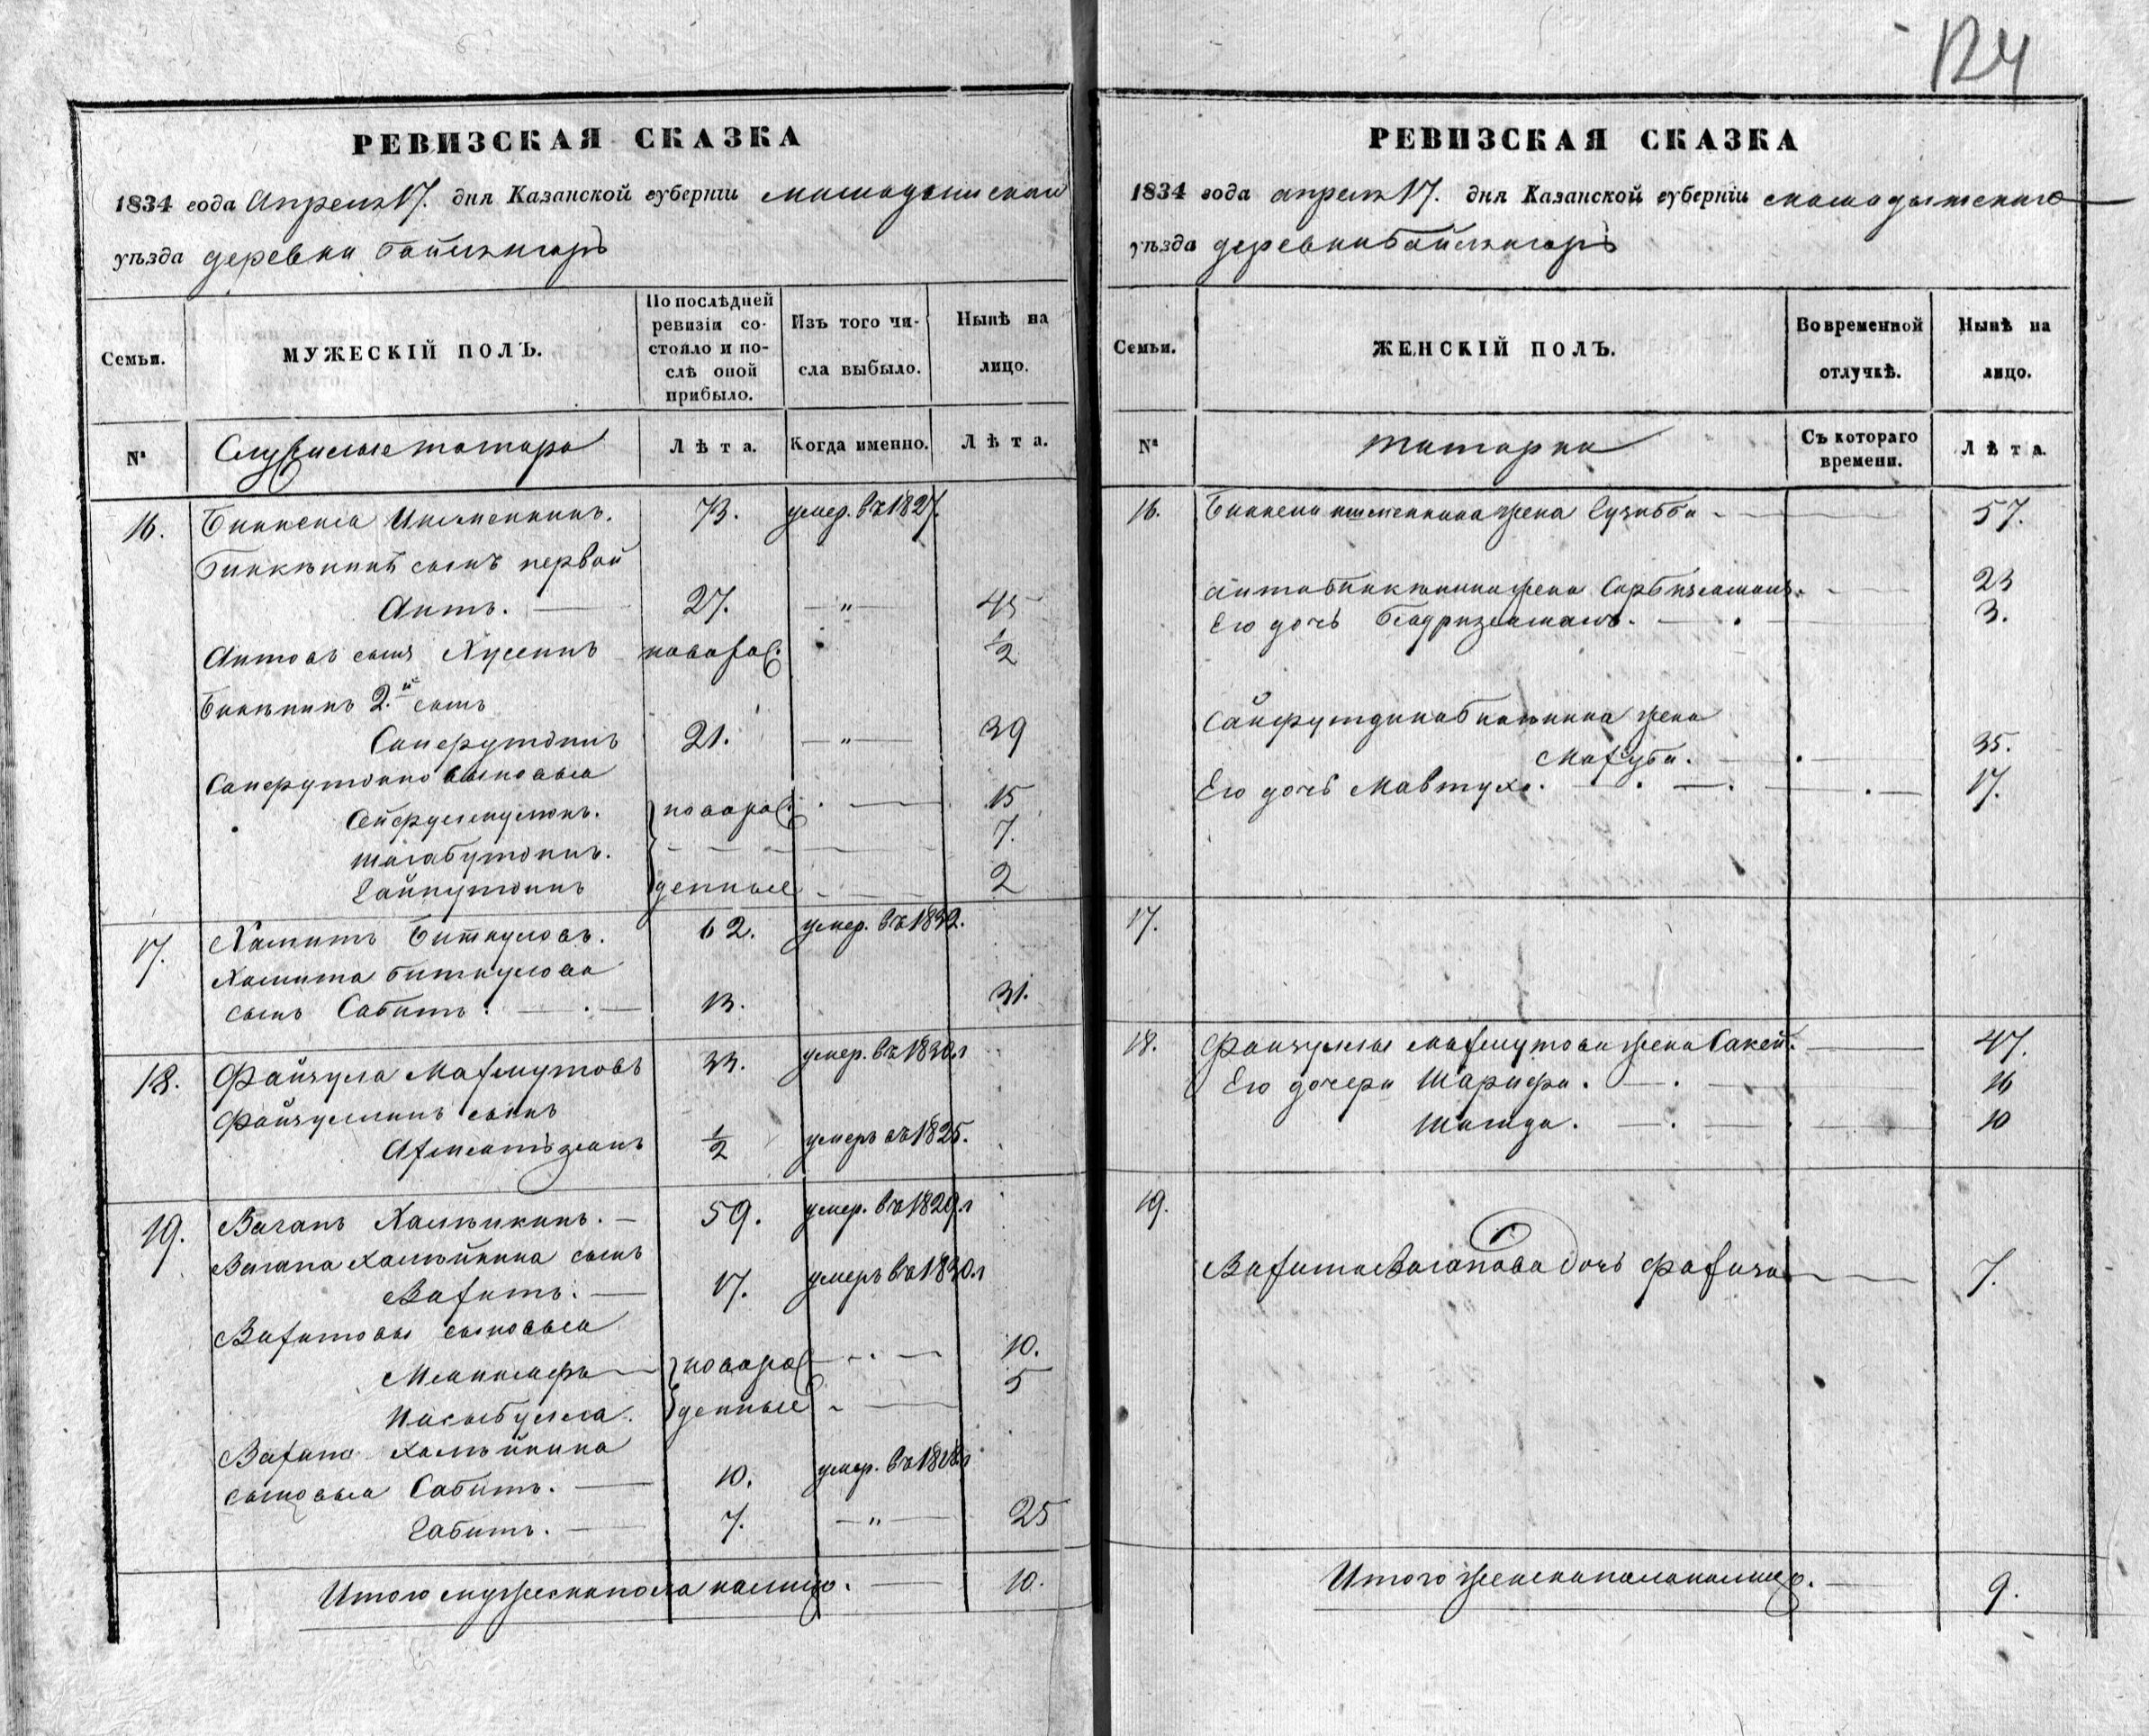 124
РЕВИЗСКАЯ СКАЗКА
1834 года Апреля 17. дня Казанской губернiи мамадышскаго
уѣзда деревни Байлянгаръ
Семьи.
МУЖЕСКIЙ ПОЛЪ.
По послѣдней ревизiи со-
стояло и по-
слѣ оной
прибыло.
Изъ того чи-
сла выбыло.
Нынѣ на
лицо.
№
Служилые татара
Лѣта.
Когда именно.
Лѣта.
16. 73. умер. въ 1827.
сынъ первой
Аитъ. — 27. —"— 45
Аитовъ сынъ Хусеинъ новорож. ½
2.й сынъ
Сайфутдинъ 21. —"— 39
Сайфутдина сыновья
новорож. — 15
Шагабутдинъ. — 7.
Гайнутдинъ денные — 2
17. Хамитъ Биткуловъ. 62. умер. въ 1832.
Хамита Биткулова
сынъ Сабитъ. — 13. 31.
18. Файзула Махмутовъ 33. умер. въ 1830.г
Файзуллинъ сынъ
Ахметьзянъ ½ умеръ въ 1825.
19. Ваганъ Халѣйкинъ. — 59. умер. въ 1829.г
Вагана Халѣйкина сынъ
Вахитъ. — 17. умеръ въ 1830.г
Вахитовы сыновья
новорож — 10.
Насыбулла. денные — 5
Халѣйкина
сыновья Сабитъ. — 10. умер. въ 1818.г
Габитъ. — 7. —"— 25
Итого мужеска пола налицо. — 10.
РЕВИЗСКАЯ СКАЗКА
1834 года апреля 17. дня Казанской губернiи мамадышскаго
уѣзда деревни Байлянгаръ
Семьи.
ЖЕНСКIЙ ПОЛЪ.
Во временной
отлучкѣ.
Нынѣ на
лицо.
№
татарки
Съ котораго
времени.
Лѣта.
16. жена — 57.
жена — 23
Его дочь Бадризямалъ. — 3.
Сайфутдина жена
Махуба. — 35.
Его дочь Мавтуха. — 17.
17.
18. Файзуллы Махмутова жена — 47.
Его дочери Шарифа. — 16
— 10
19.
Вахита Ваганова дочь — 7.
Итого женска пола налицо. — 9.